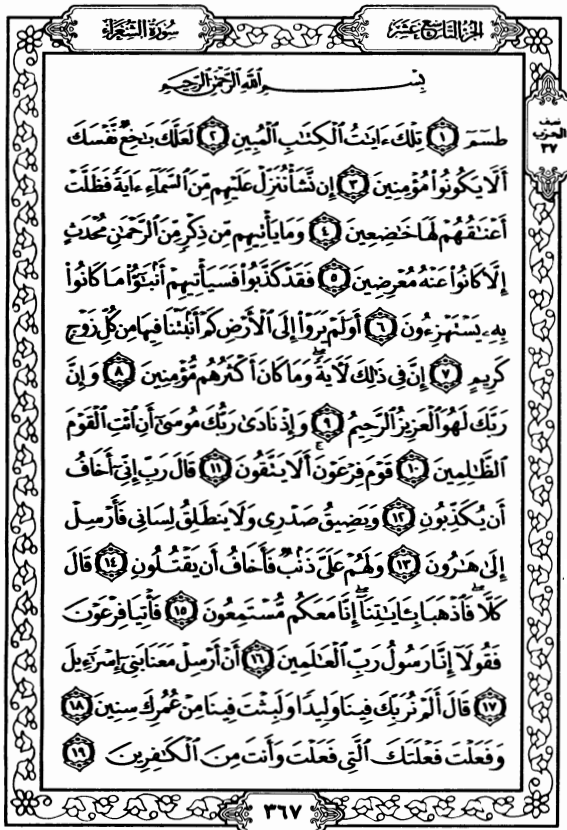 الجزء التاسع عشر
سورة الشعراء
نصف
الحزب
٣٧
بِسْمِ اللَّهِ الرَّحْمَٰنِ الرَّحِيمِ
طسٓمٓ ١ تِلْكَ ءَايَٰتُ الْكِتَٰبِ الْمُبِينِ ٢ لَعَلَّكَ بَٰخِعٌ نَّفْسَكَ
أَلَّا يَكُونُوا۟ مُؤْمِنِينَ ٣ إِن نَّشَأْ نُنَزِّلْ عَلَيْهِم مِّنَ السَّمَآءِ ءَايَةً فَظَلَّتْ
أَعْنَٰقُهُمْ لَهَا خَٰضِعِينَ ٤ وَمَا يَأْتِيهِم مِّن ذِكْرٍ مِّنَ الرَّحْمَٰنِ مُحْدَثٍ
إِلَّا كَانُوا۟ عَنْهُ مُعْرِضِينَ ٥ فَقَدْ كَذَّبُوا۟ فَسَيَأْتِيهِمْ أَنۢبَٰٓؤُا۟ مَا كَانُوا۟
بِهِۦ يَسْتَهْزِءُونَ ٦ أَوَلَمْ يَرَوْا۟ إِلَى الْأَرْضِ كَمْ أَنۢبَتْنَا فِيهَا مِن كُلِّ زَوْجٍ
كَرِيمٍ ٧ إِنَّ فِى ذَٰلِكَ لَءَايَةً ۖ وَمَا كَانَ أَكْثَرُهُم مُّؤْمِنِينَ ٨ وَإِنَّ
رَبَّكَ لَهُوَ الْعَزِيزُ الرَّحِيمُ ٩ وَإِذْ نَادَىٰ رَبُّكَ مُوسَىٰٓ أَنِ ائْتِ الْقَوْمَ
الظَّٰلِمِينَ ١٠ قَوْمَ فِرْعَوْنَ ۚ أَلَا يَتَّقُونَ ١١ قَالَ رَبِّ إِنِّىٓ أَخَافُ
أَن يُكَذِّبُونِ ١٢ وَيَضِيقُ صَدْرِى وَلَا يَنطَلِقُ لِسَانِى فَأَرْسِلْ
إِلَىٰ هَٰرُونَ ١٣ وَلَهُمْ عَلَىَّ ذَنۢبٌ فَأَخَافُ أَن يَقْتُلُونِ ١٤ قَالَ
كَلَّا ۖ فَاذْهَبَا بِـَٔايَٰتِنَآ ۖ إِنَّا مَعَكُم مُّسْتَمِعُونَ ١٥ فَأْتِيَا فِرْعَوْنَ
فَقُولَآ إِنَّا رَسُولُ رَبِّ الْعَٰلَمِينَ ١٦ أَنْ أَرْسِلْ مَعَنَا بَنِىٓ إِسْرَٰٓءِيلَ
١٧ قَالَ أَلَمْ نُرَبِّكَ فِينَا وَلِيدًا وَلَبِثْتَ فِينَا مِنْ عُمُرِكَ سِنِينَ ١٨
وَفَعَلْتَ فَعْلَتَكَ الَّتِى فَعَلْتَ وَأَنتَ مِنَ الْكَٰفِرِينَ ١٩
٣٦٧